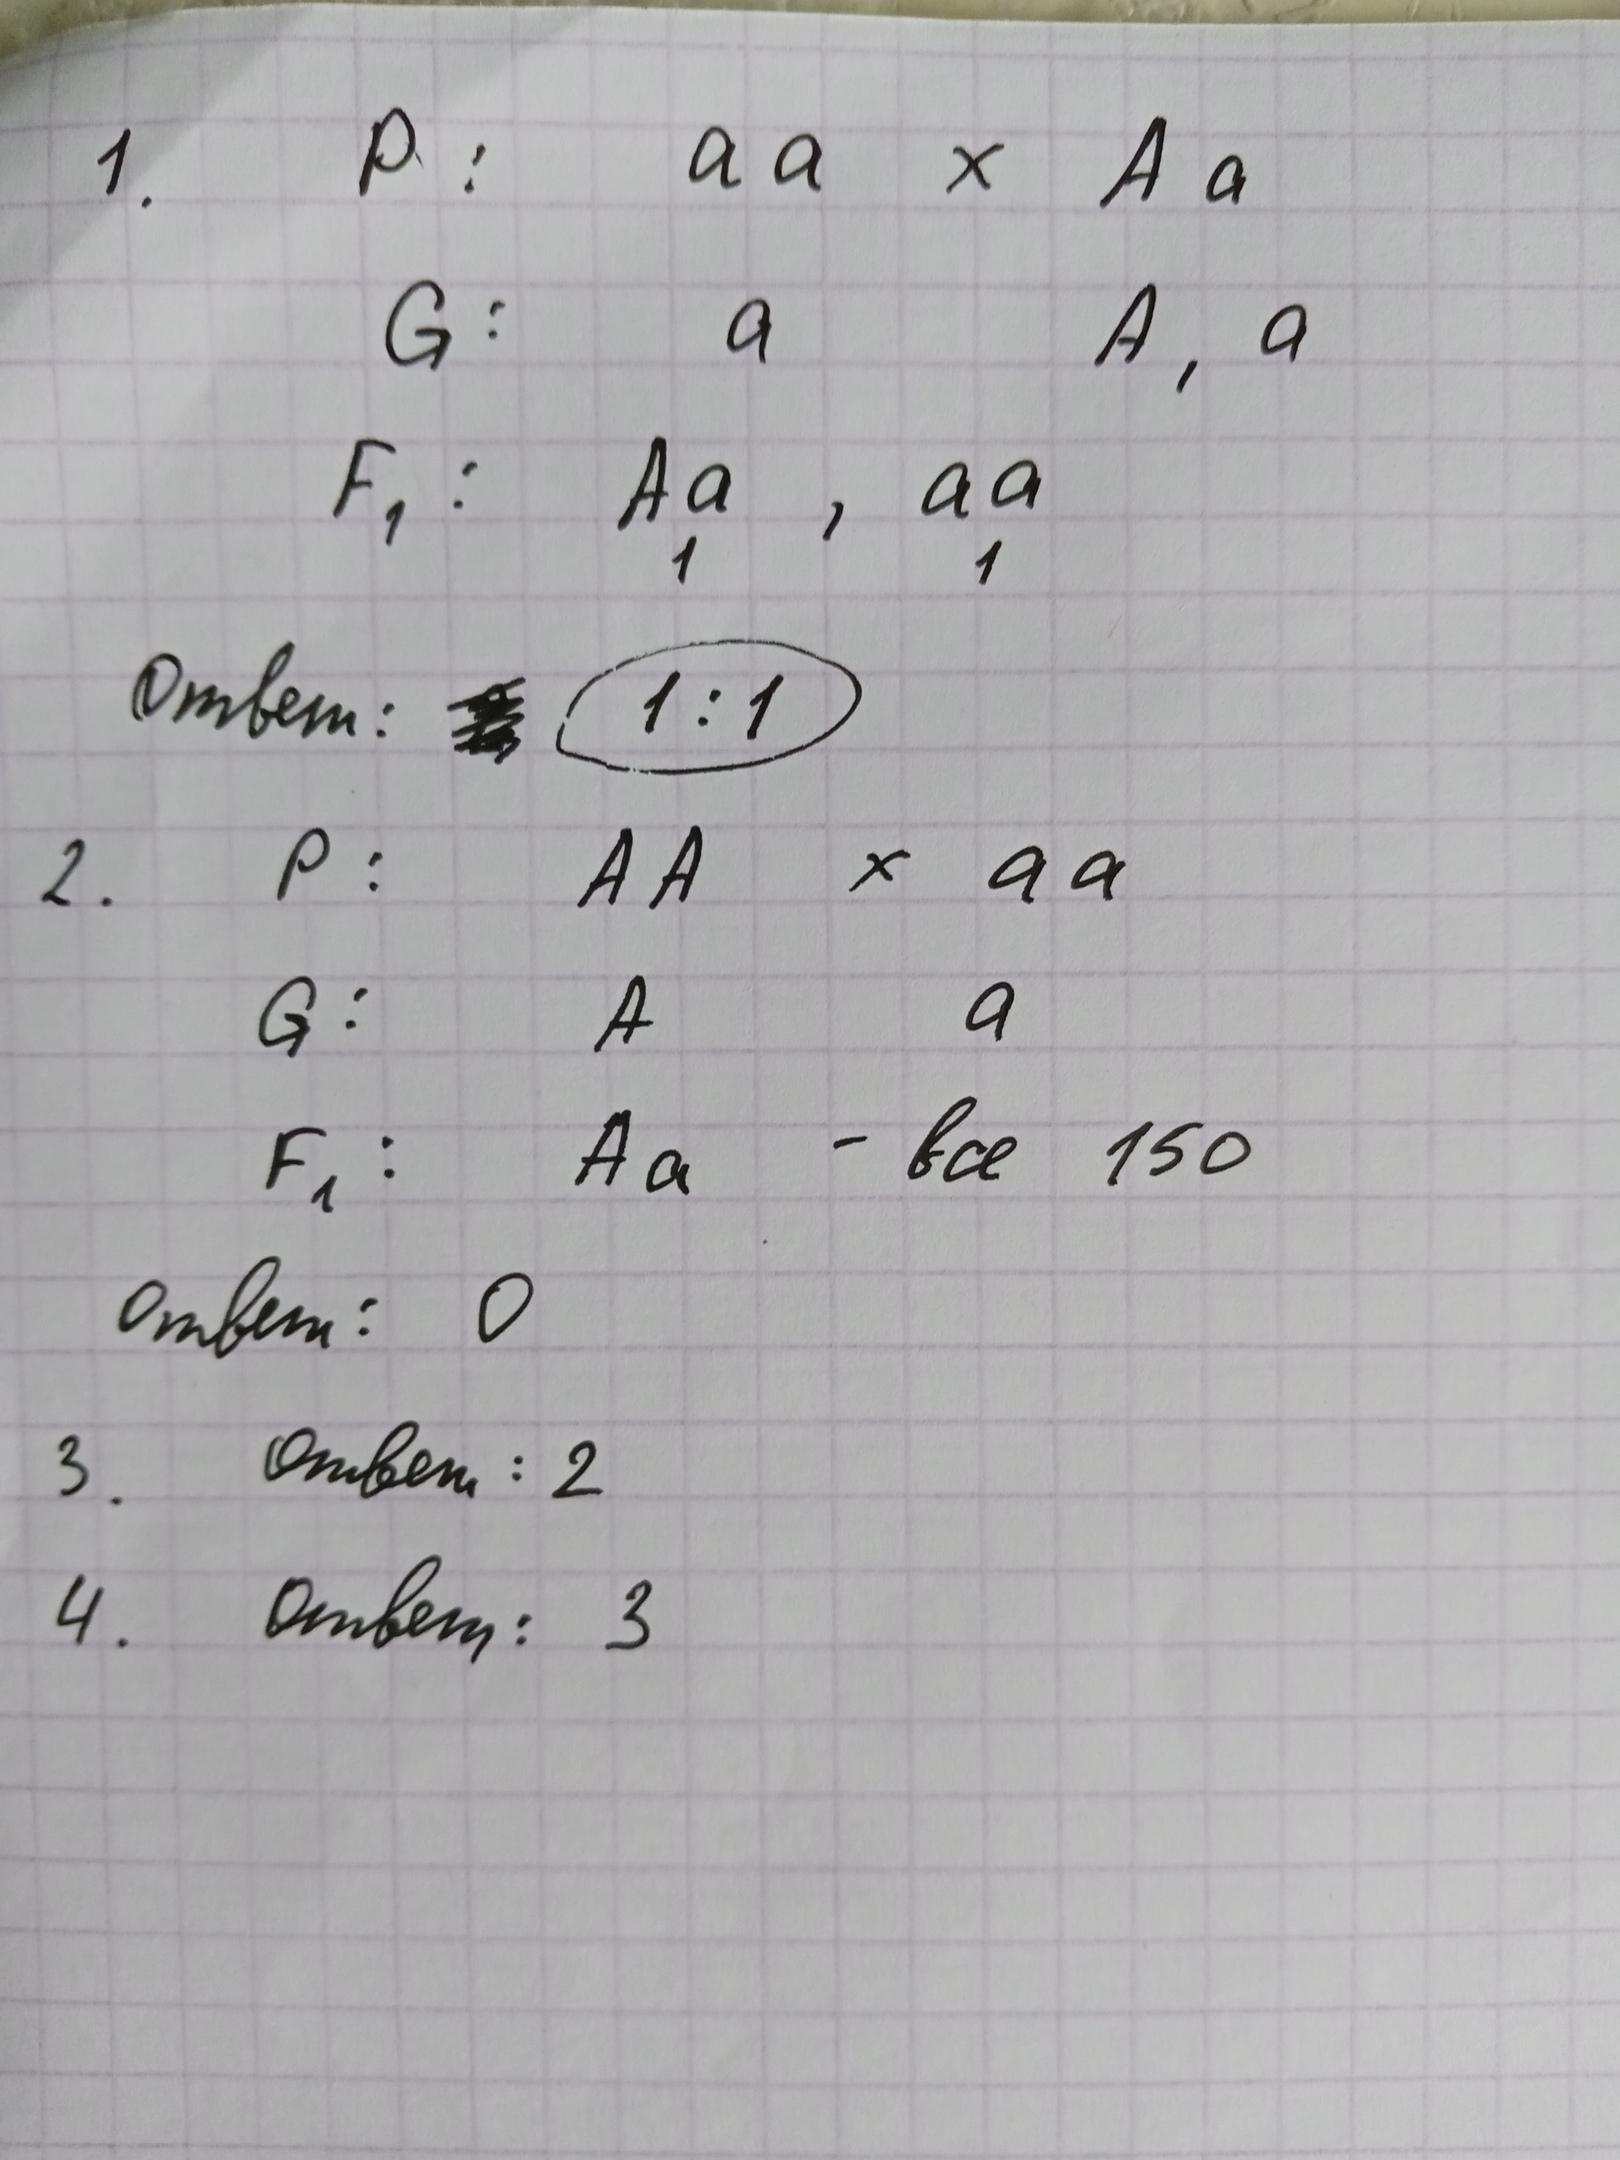 1. P: aa x Aa
G: a A, a
F1: Aa, aa
1 1
Ответ: 1:1
2. P: AA x aa
G: A a
F1: Aa - все 150
Ответ: 0
3. Ответ: 2
4. Ответ: 3